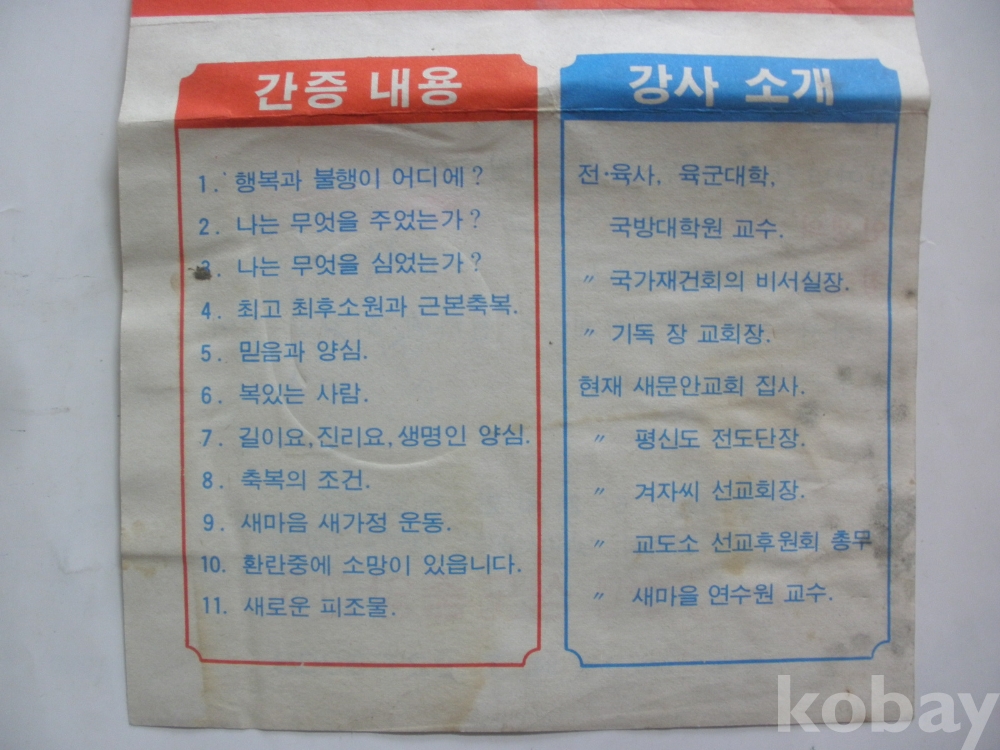 간증 내용
1. 행복과 불행이 어디에?
2. 나는 무엇을 주었는가?
3. 나는 무엇을 심었는가?
4. 최고 최후소원과 근본축복.
5. 믿음과 양심.
6. 복있는 사람.
7. 길이요, 진리요, 생명인 양심.
8. 축복의 조건.
9. 새마음 새가정 운동.
10. 환란중에 소망이 있읍니다.
11. 새로운 피조물.
강사 소개
전·육사, 육군대학,
국방대학원 교수.
〃 국가재건회의 비서실장.
〃 기독 장 교회장.
현재 새문안교회 집사.
〃 평신도 전도단장.
〃 겨자씨 선교회장.
〃 교도소 선교후원회 총무
〃 새마을 연수원 교수.
kobay